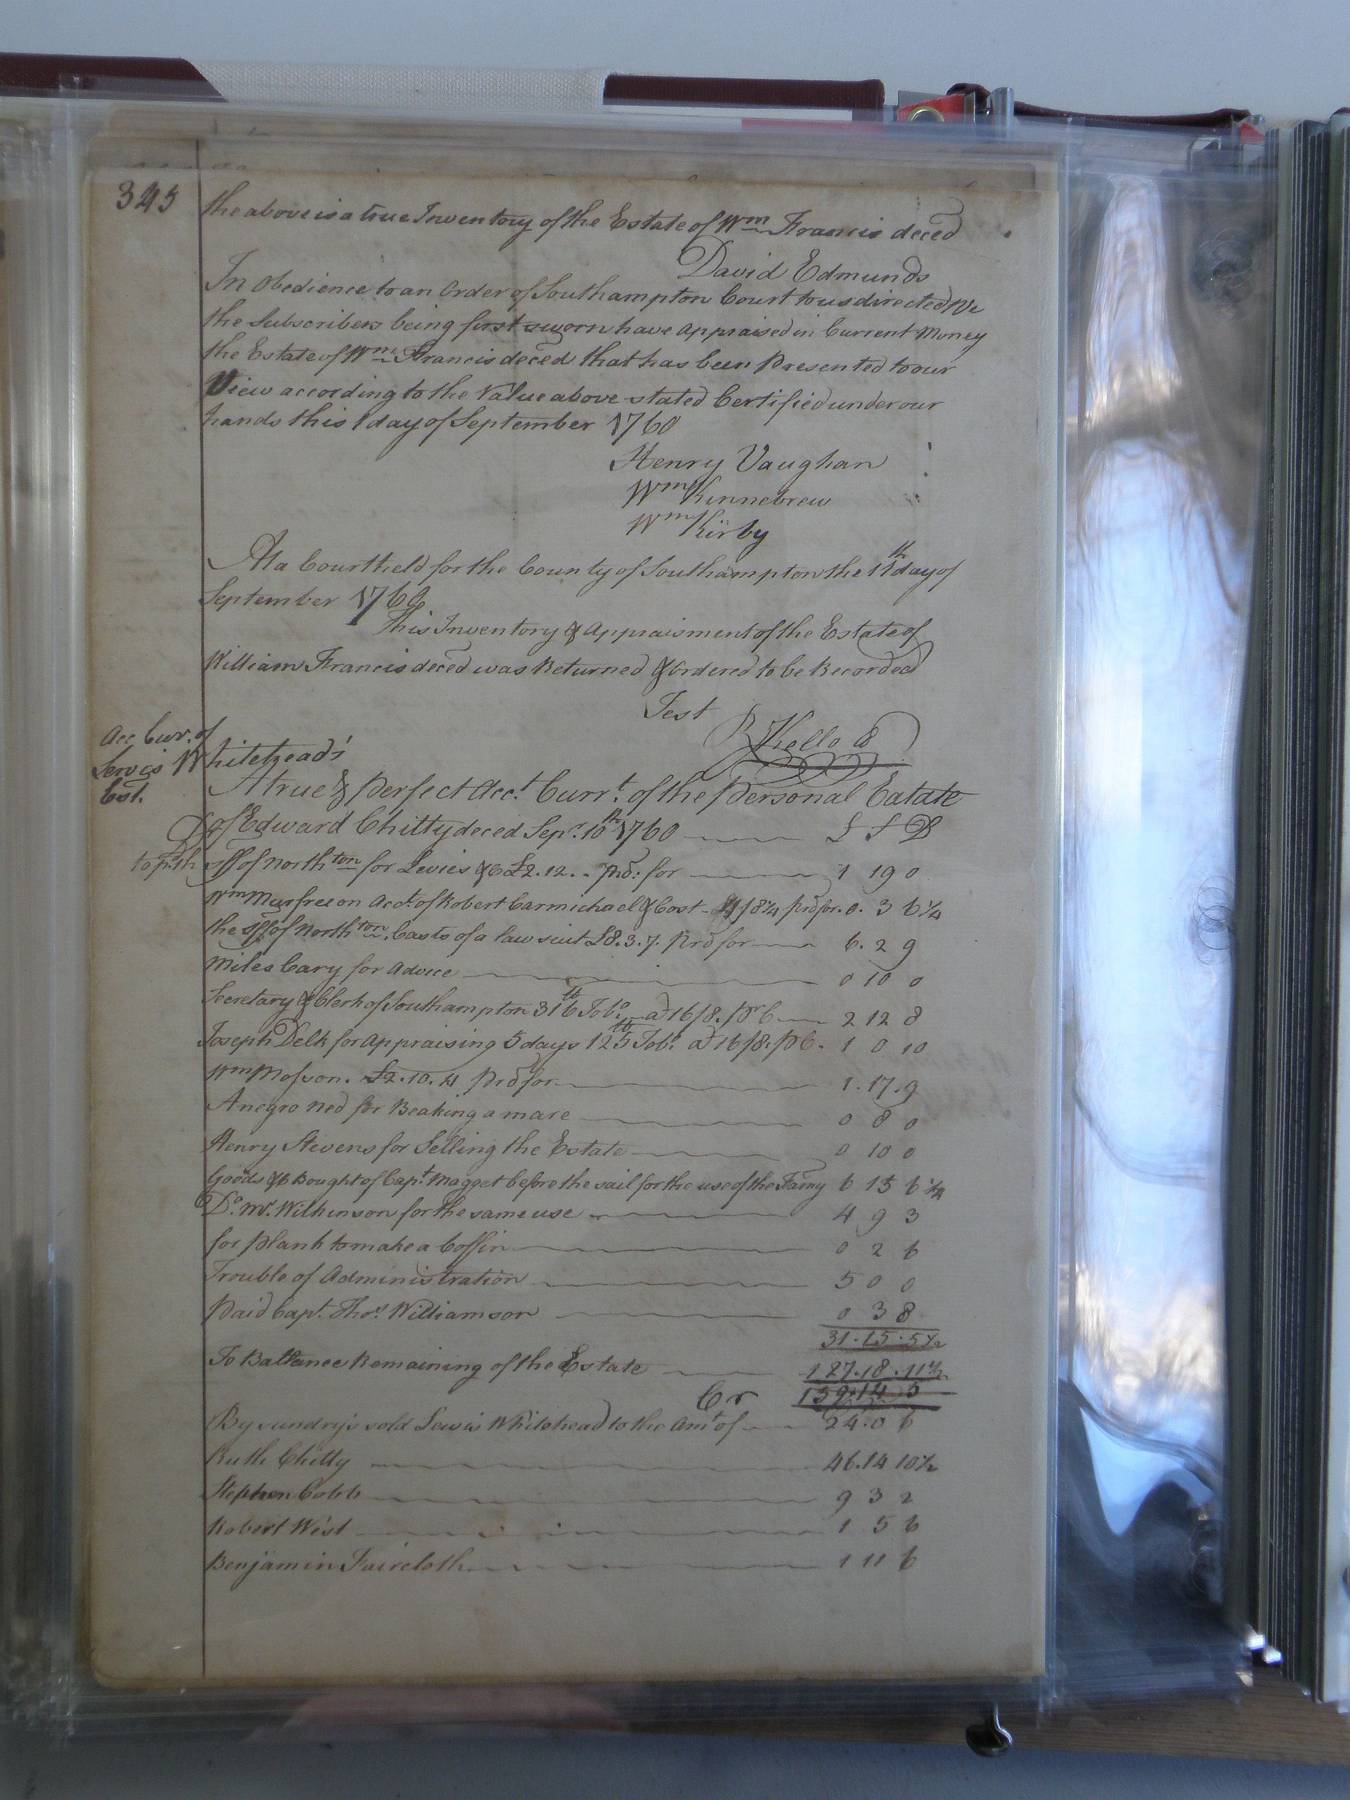 345
the above is a true Inventory of the Estate of Wm Francis deced
David Edmunds
In Obedience to an Order of Southampton Court to us directed We
the Subscribers being first sworn have appraised in Current Money
the Estate of Wm Francis deced that has been Presented to our
View according to the Value above stated Certified under our
hands this 1 day of September 1760
Henry Vaughan
Wm Kinnebrew
Wm Kirby
At a Court held for the County of Southampton the 11th day of
September 1760
This Inventory & Appraisment of the Estate of
William Francis deced was Returned & Ordered to be Recorded
Test
R Kello C
Acc Curr. of
Lewis Whitehead's
Est.
A true & perfect Acct. Currt. of the personal Eatate
Dr of Edward Chitty deced Sepr. 10th 1760 £ S D
to pd. th Sff of Northton for Levies &C £2.12.. Prd: for 1 19 0
Wm Murfree on Acct. of Robert Carmichael & Cost 4/8¼ prd for. 0. 3 6¼
the Sff. of Northton. Casts of a law suit £8.3.7. Prd for 6. 2 9
Miles Cary for Advice 0 10 0
Secretary & Clerk of Southampton 316lb Tobo. ad 16/8. pr C 2 12 8
Joseph Delk for appraising 5 days 125lb Tobo. ad 16/8. pr C. 1 0 10
Wm Moson. £2.10.4 Prd for 1.17.9
A negro Ned for Beaking a mare 0 8 0
Henry Stevens for Selling the Estate 0 10 0
Goods &C Bought of Capt. Magget before the sail for the use of the Famy 6 15 6¼
Do. Mr. Wilkinson for the same use 4 9 3
for Plank to make a Coffin 0 2 6
Trouble of Administration 5 0 0
Paid Capt. Thos. Williamson 0 3 8
31.15.5½
To Ballance Remaining of the Estate 127.18.11½
Cr 159.14 5
By sundry's sold Lewis Whitehead to the Amt of 24.0 6
Ruth Chitty 46.14 10½
Stephen Cobb 9 3 2
Robert West 1 5 6
Benjamin Faircloth 1 11 6